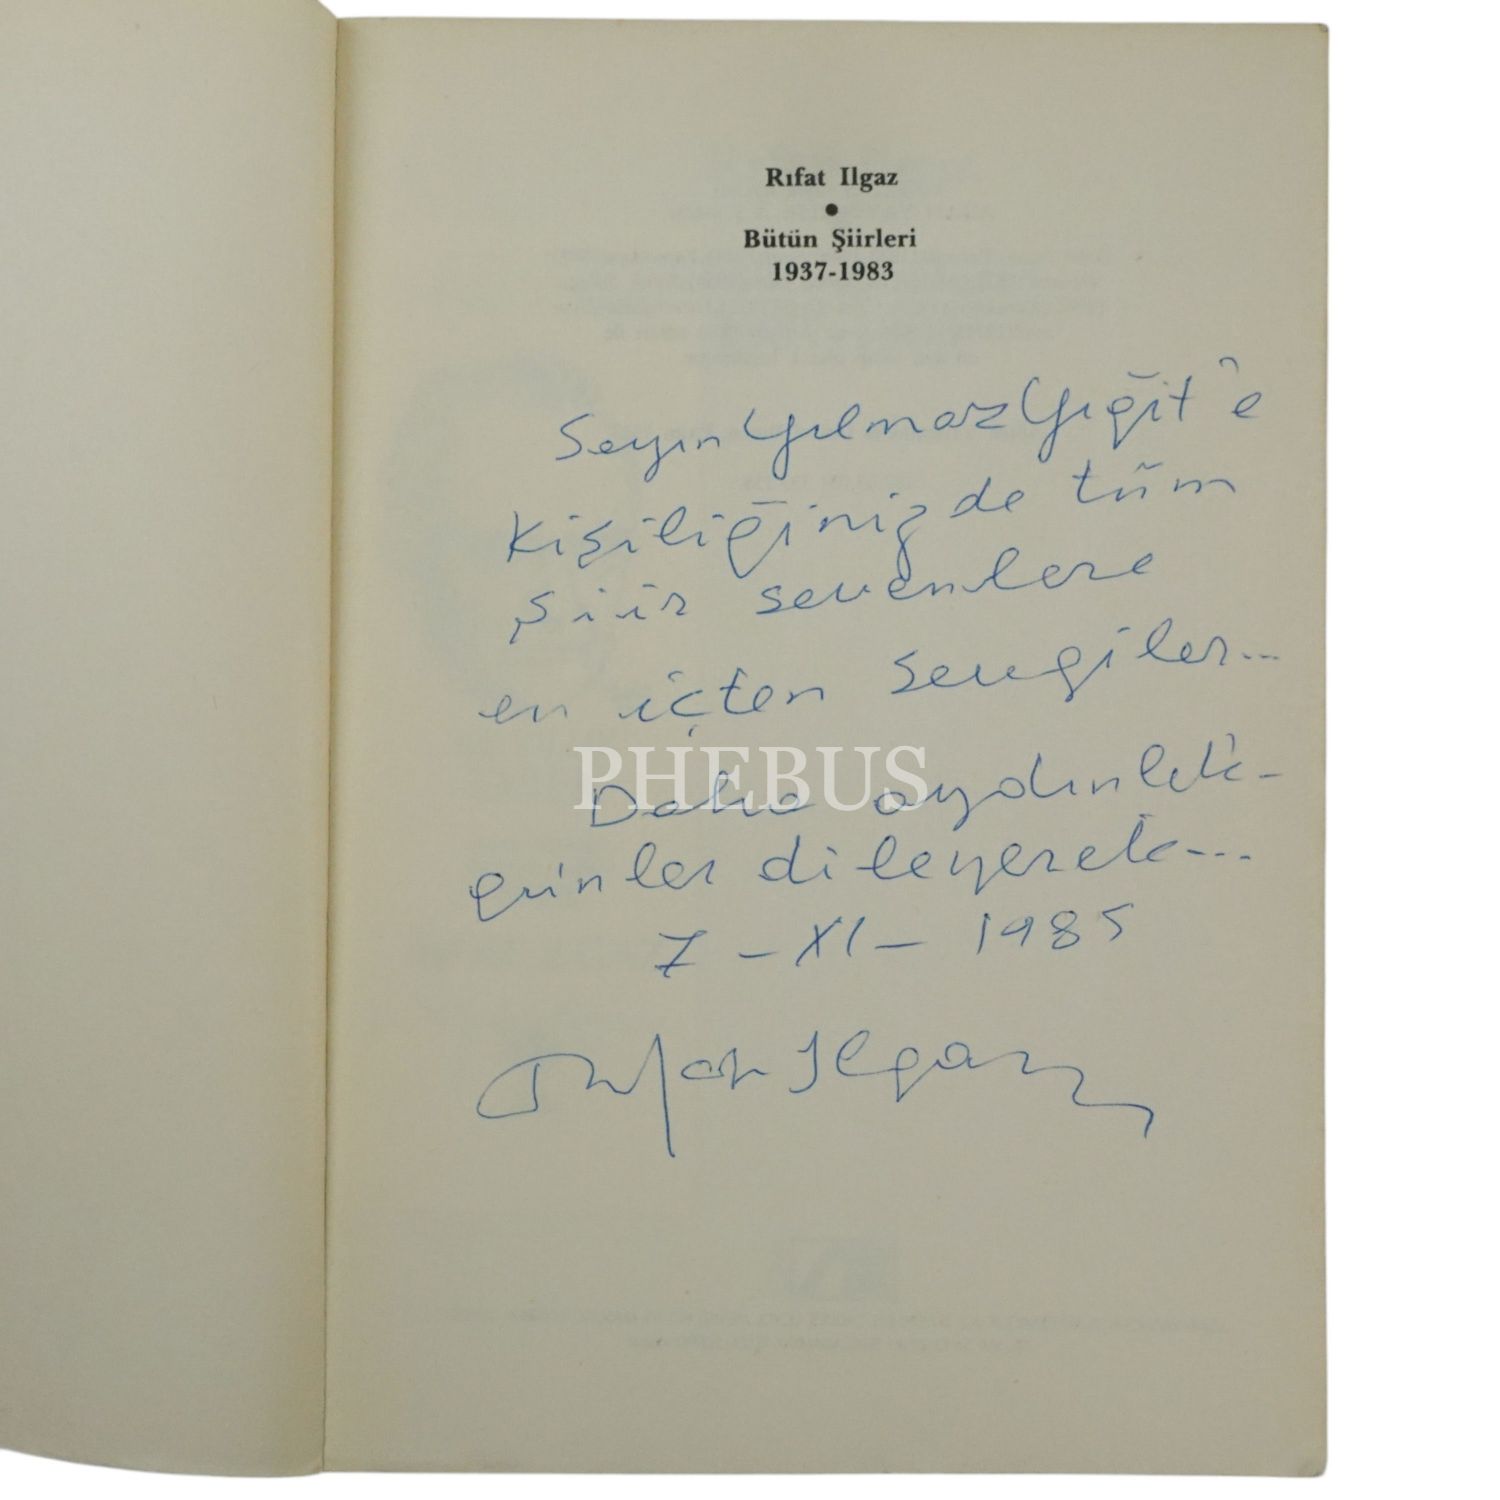 Rıfat Ilgaz
•
Bütün Şiirleri
1937-1983
Sayın Yılmaz Yiğit'e
Kişiliğinizde tüm
şiir sevenlere
en içten sevgiler...
PHEBUS
Daha aydınlık
günler dileyerek...
7-XI-1985
Rıfat Ilgaz